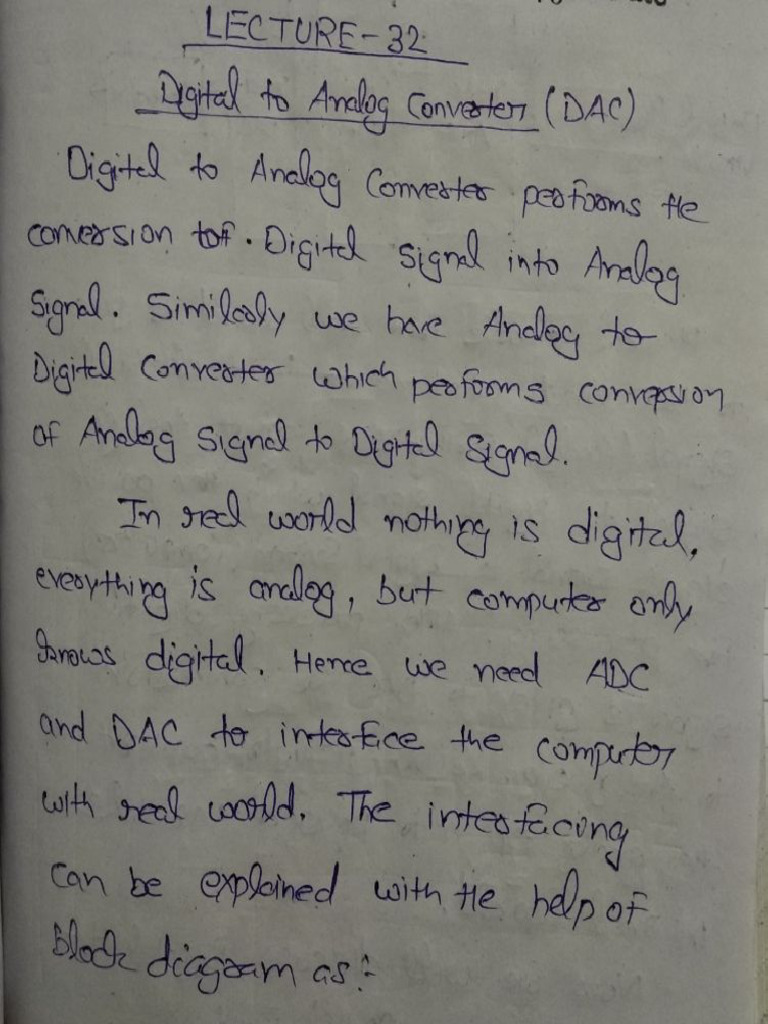 LECTURE-32
Digital to Analog Converter (DAC)
Digital to Analog Converter performs the
conversion of. Digital signal into Analog
Signal. Similarly we have Analog to
Digital Converter which performs conversion
of Analog Signal to Digital Signal.
In real world nothing is digital,
everything is analog, but computer only
knows digital. Hence we need ADC
and DAC to interface the computer
with real world. The interfacing
can be explained with the help of
Block diagram as:-